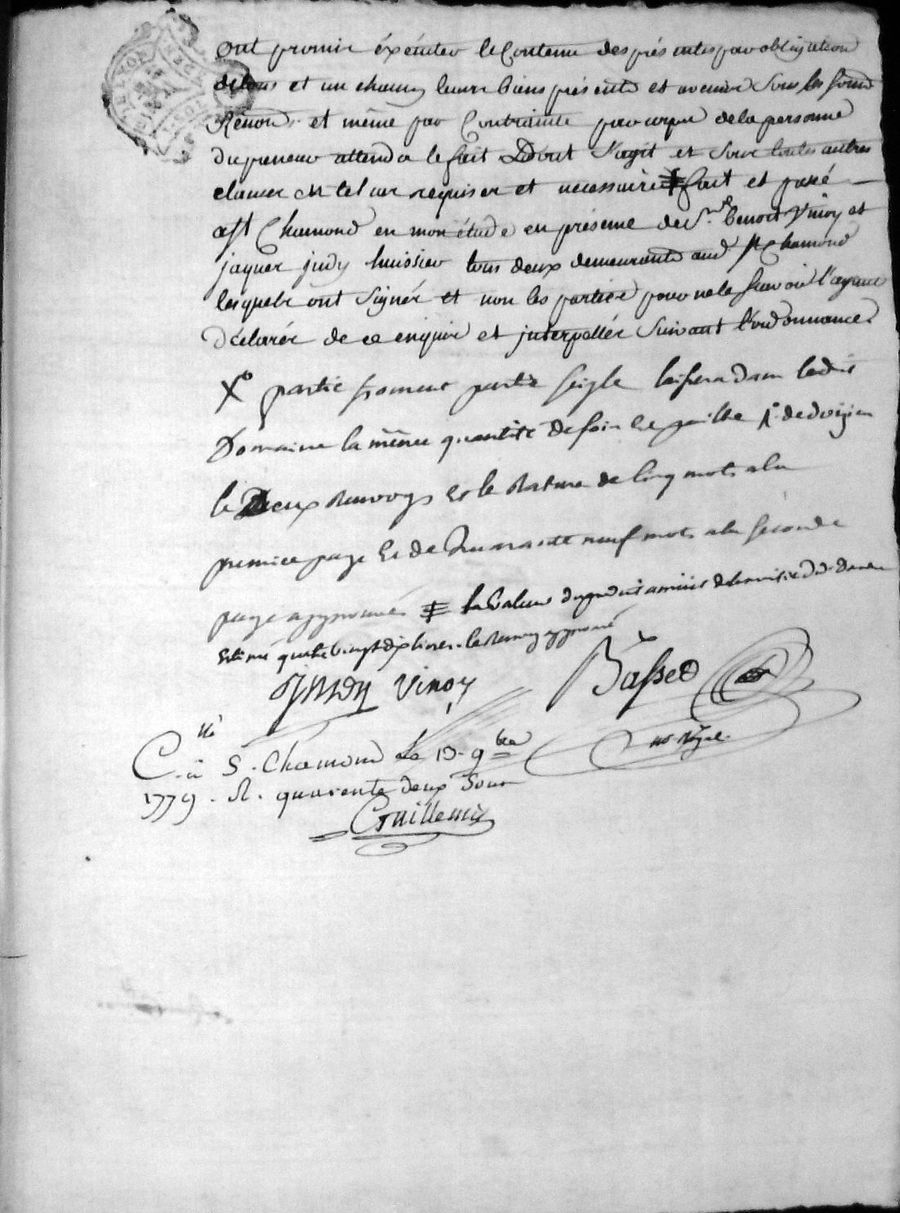 ont promis éxécuter le Contenu des présentes par obligation
de tous et un chacun leurs biens présents et avenir Sous les Soum
Renon. et même par Contrainte par corps de la personne
du preneur attendu le fait dont s'agit et Sous toutes autres
clauses en tel cas requises et nécessaires ǂ fait et passé
a St Chamond en mon étude en présence de Sr. benoit Vinoy et
jaques judy huissier tous deux demeurants aud St Chamond
lesquels ont Signés et non les parties pour ne le Scavoir l'ayant
déclarés de ce enquis et interpellés Suivant l'ordonnance
X° partie froment partie Seigle laissera dans ledit
Domaine la même quantité de foin et paille
le Deux Renvoys et le Rature de Cinq mots a la
premiere page et de quarante neuf mots a la seconde
page approuvés ǂ la valeur
Estimé quatrevingt dix livres le Renvoy approuvé
Vinoy Basset
no. Royal
C. né à S. Chamond Le 13. 9bre
1779. R. quarente deux Sous
Guillemin